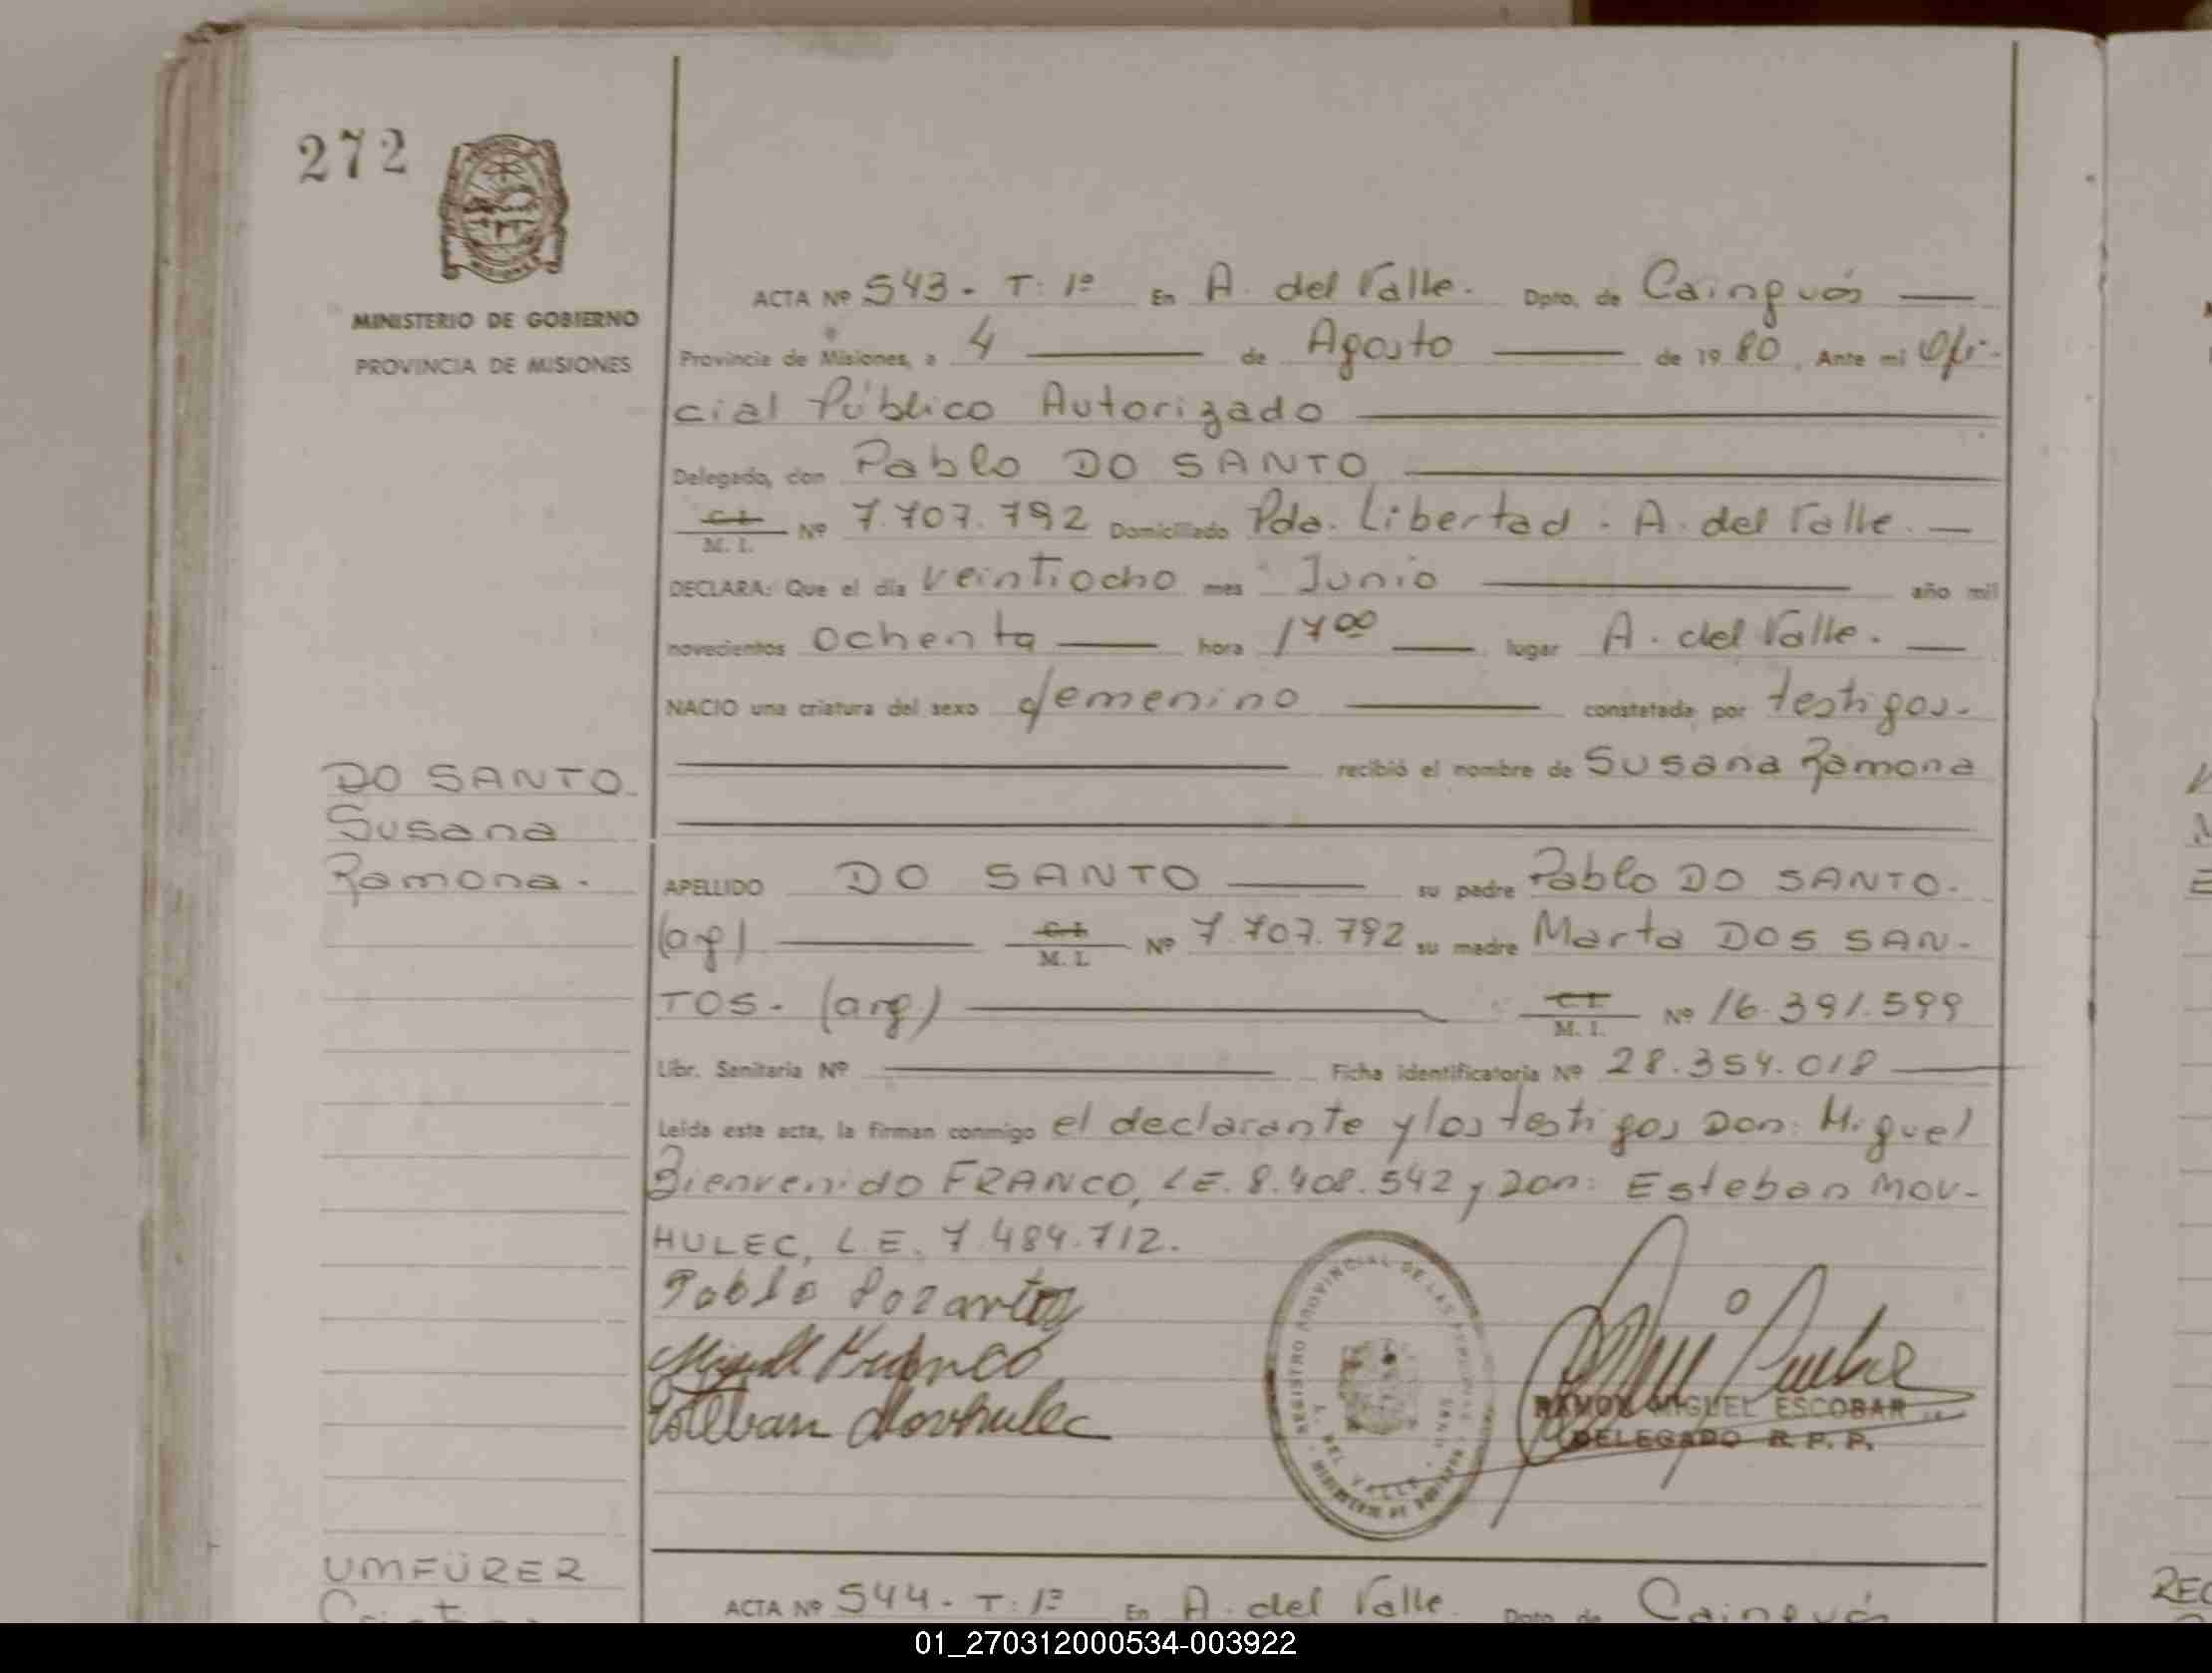 272
MISIONES
MINISTERIO DE GOBIERNO
PROVINCIA DE MISIONES
ACTA Nº 543 - T: 1º En A. del Valle. Dpto. de Cainguás
Provincia de Misiones, a 4 de Agosto de 19 80, Ante mi Ofi-
cial Público Autorizado
Delegado, don Pablo DO SANTO
C. I. M. I. Nº 7.707.792 Domiciliado Pda. Libertad - A. del Valle.
DECLARA: Que el día veintiocho mes Junio año mil
novecientos ochenta hora 17 00 lugar A. del Valle.
NACIO una criatura del sexo femenino constatada por testigos.
recibió el nombre de Susana Ramona
DO SANTO
Susana
Ramona.
APELLIDO DO SANTO su padre Pablo DO SANTO.
(ag) C. I. M. I. Nº 7.707.792 su madre Marta DOS SAN-
TOS. (arg.) C. I. M. I. Nº 16.391.599
Libr. Sanitaria Nº Ficha identificatoria Nº 28.354.018
Leída este acta, la firman conmigo el declarante y los testigos Don: Miguel
Bienvenido FRANCO, L.E. 8.408.542 y Don: Esteban MOV-
HULEC, L.E. 7.484.712.
Pablo
Miguel Franco
Esteban Movhulec
REGISTRO PROVINCIAL DE LAS PERSONAS
A. DEL VALLE
RAMON MIGUEL ESCOBAR
DELEGADO R. P. P.
UMFÜRER
ACTA Nº 544 - T: 1º En A. del Valle Dpto. de Cainguás
REG
01_270312000534-003922